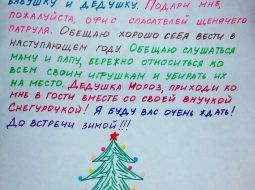 бабушку и дедушку. Подари мне,
пожалуйста, офис спасателей щенячего
патруля. Обещаю хорошо себя вести в
наступающем году. Обещаю слушаться
маму и папу, бережно относиться ко
всем своим игрушкам и убирать их
на место. Дедушка Мороз, приходи ко
мне в гости вместе со своей внучкой
Снегурочкой! Я буду вас очень ждать!
До встречи зимой!!!